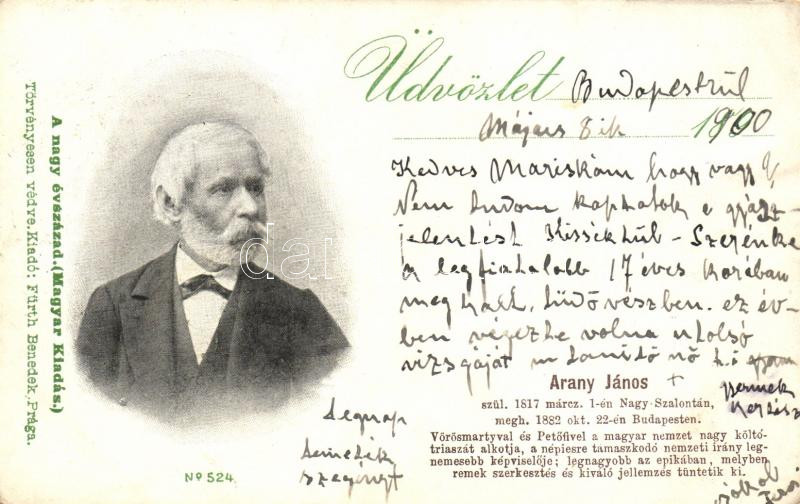 Üdvözlet Budapestrül
Május 8ik 1900
Kedves Mariskám hogy vagy?
Nem tudom kaptatok e gyász-
jelentést Kissektül - Szerénke
a legfiatalabb 17 éves korában
meghalt, tüdővészben. ez év-
ben végezte volna utolsó
vizsgáját
Arany János
szül. 1817 márcz. 1-én Nagy-Szalontán,
megh. 1882 okt. 22-én Budapesten.
Vörösmartyval és Petőfivel a magyar nemzet nagy költő-
triaszát alkotja, a népiesre támaszkodó nemzeti irány leg-
nemesebb képviselője; legnagyobb az epikában, melyben
remek szerkesztés és kiváló jellemzés tüntetik ki.
tegnap
temették
szegényt
A nagy évszázad. (Magyar Kiadás.)
Törvényesen védve. Kiadó: Fürth Benedek, Prága.
No 524.